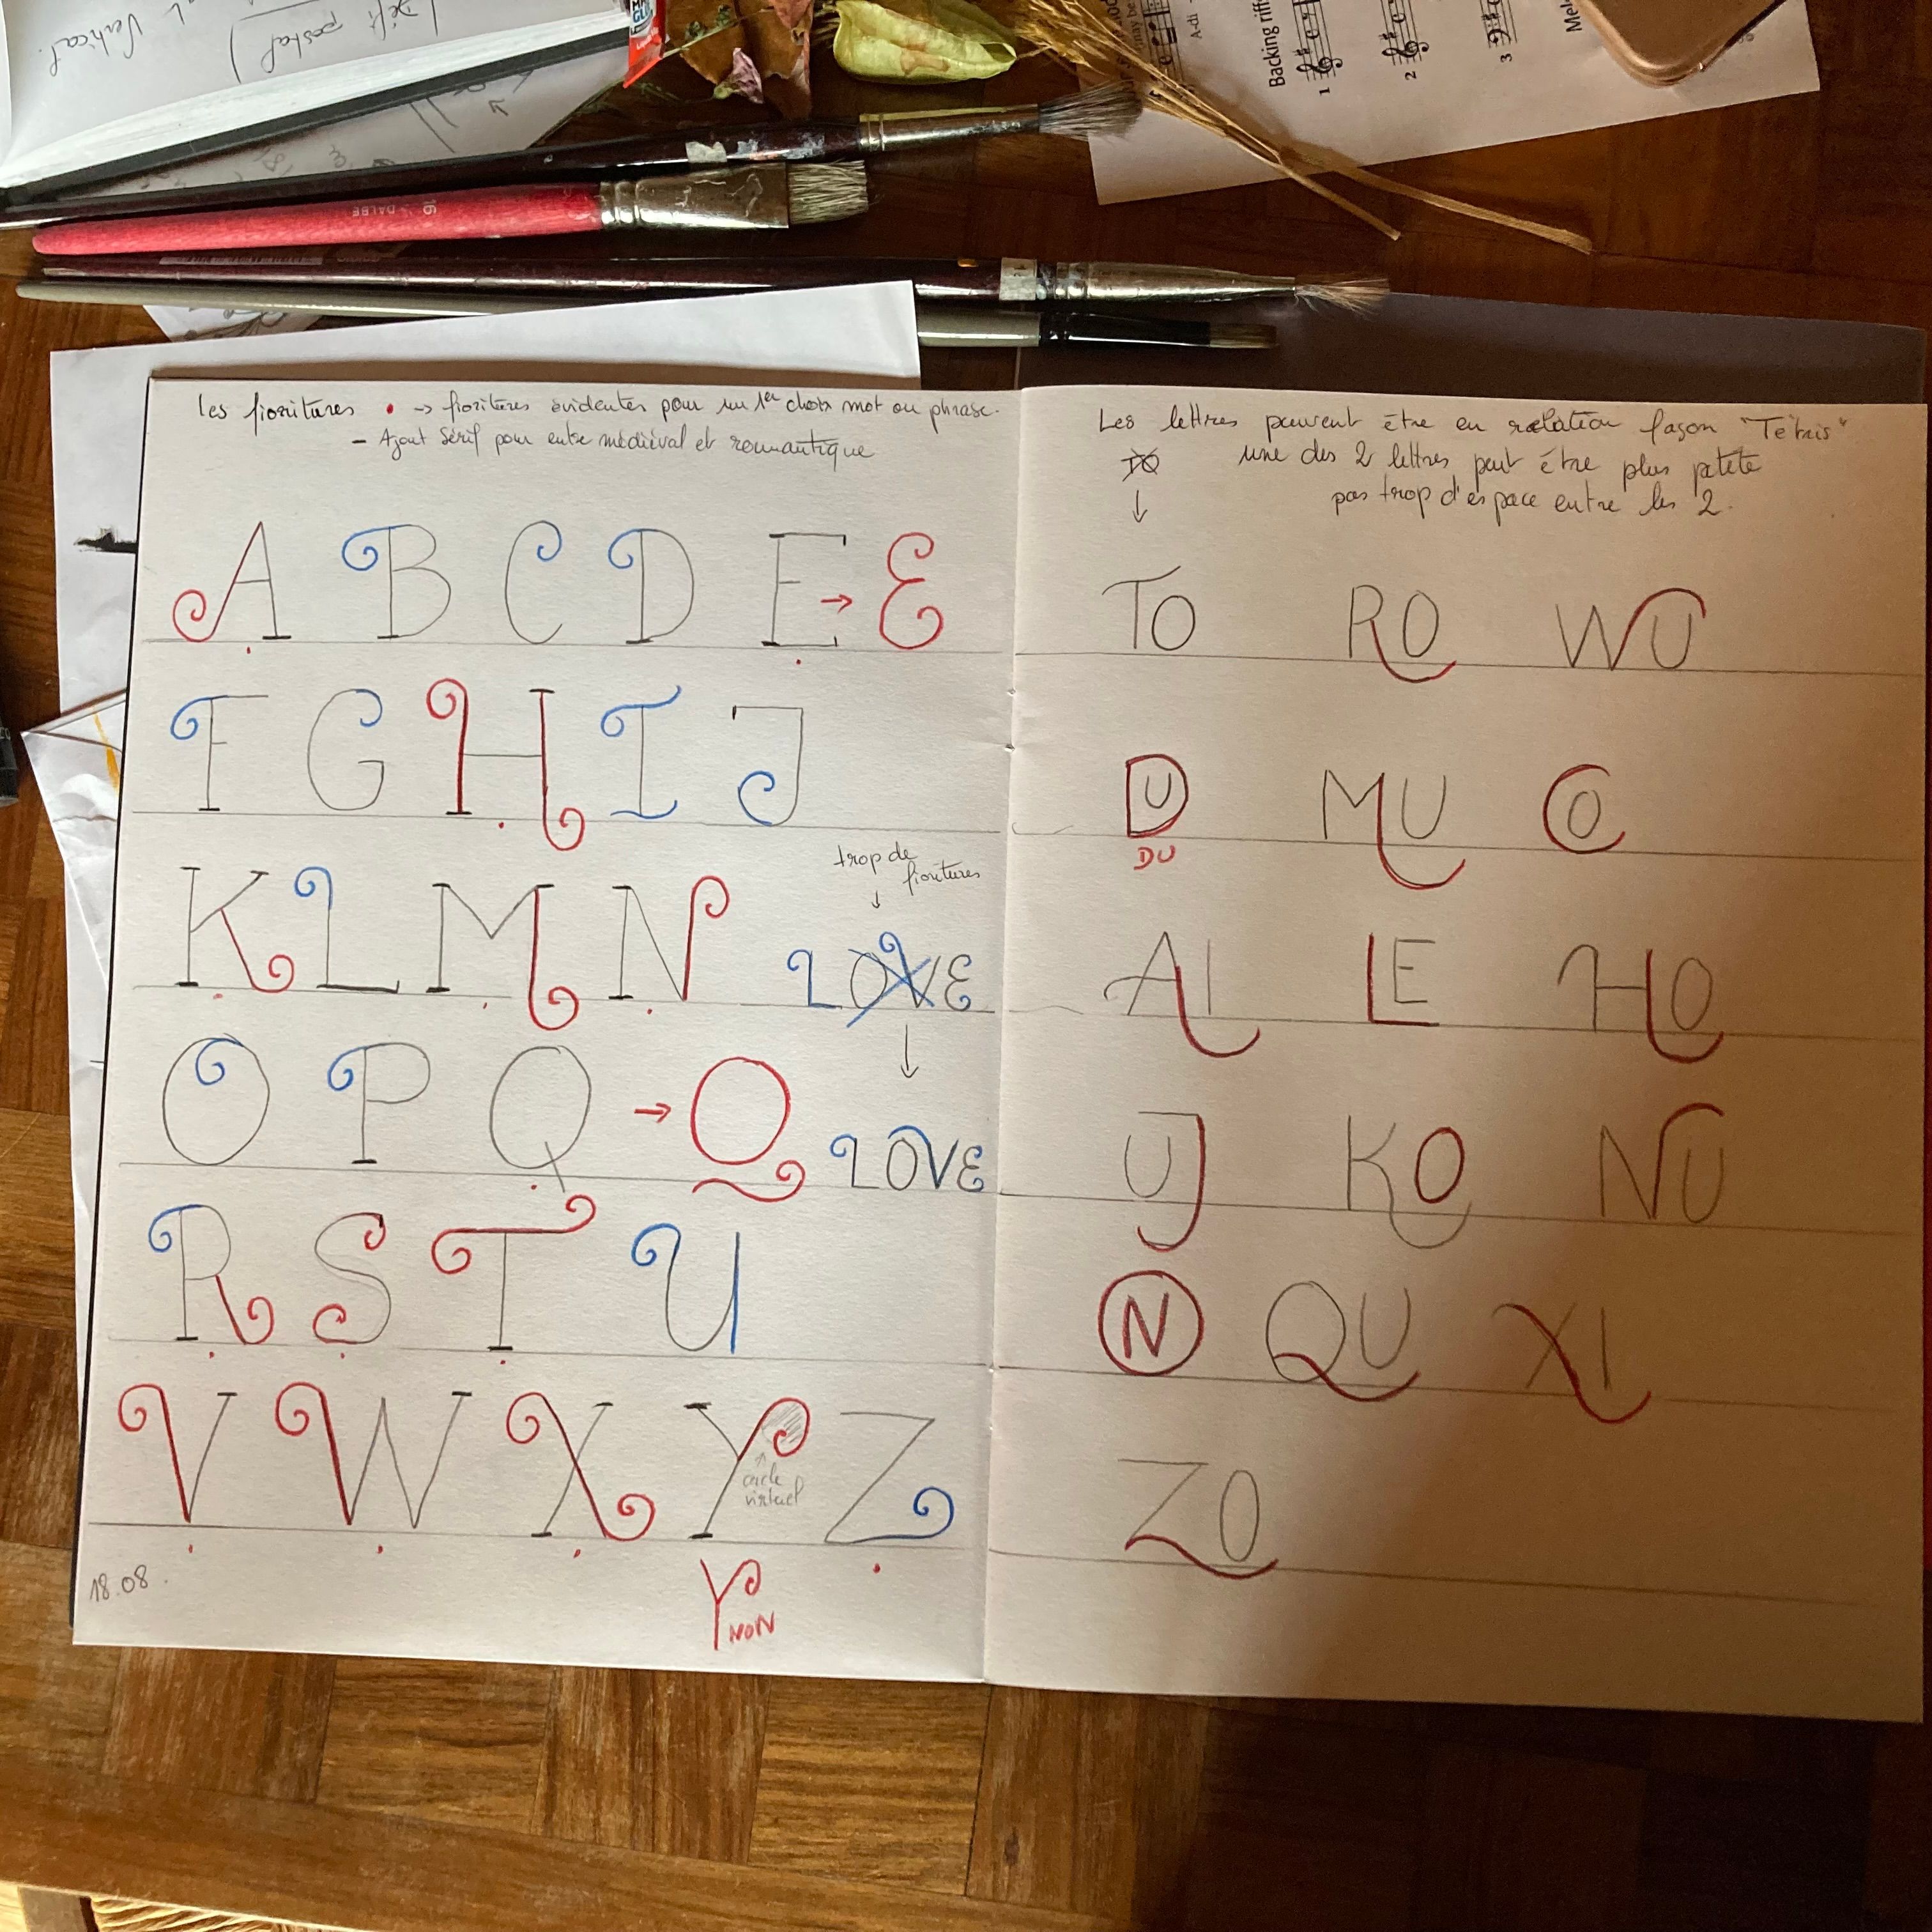 Vertical.
postal)
MA
GU
A-di
Backing riff
1
2
3
Mel
DALBE
16
les fioritures • -> fioritures évidentes pour un 1er choix mot ou phrase.
- Ajout sérif pour entre médiéval et romantique
A B C D E → E
F G H I J
trop de
fioritures
↓
K L M N
LOVE
↓
O P Q → Q
LOVE
R S T U
V W X Y Z
↑
cercle
virtuel
18.08.
Y
NON
Les lettres peuvent être en relation façon "Tétris"
TO
une des 2 lettres peut être plus petite
↓
pas trop d'espace entre les 2.
TO RO WU
DU MU CO
DU
AI LE HO
UJ KO NU
N QU XI
ZO